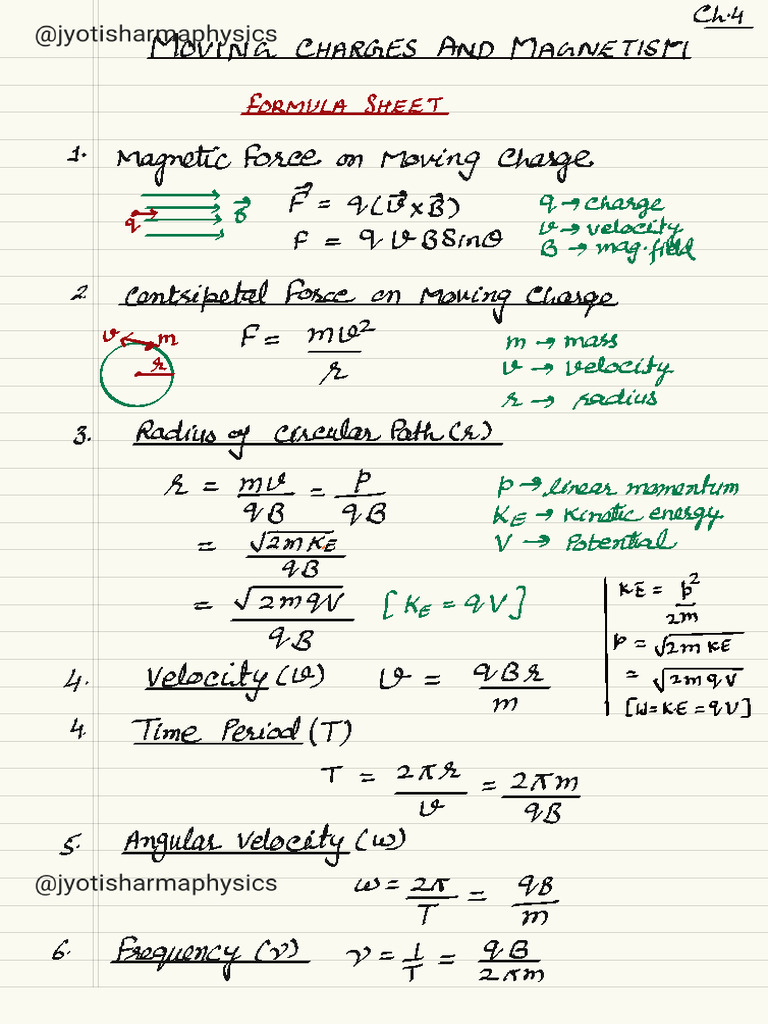 Ch.4
@jyotisharmaphysics
MOVING CHARGES AND MAGNETISM
FORMULA SHEET
1. Magnetic Force on Moving Charge
q B⃗ F⃗ = q(v⃗ × B⃗) q → charge
v → velocity
F = q v B Sinθ B → mag. field
2 Centripetal Force on Moving Charge
v m r F = mv²/r m → mass
v → velocity
r → radius
3. Radius of Circular Path (r)
r = mv/qB = P/qB P → linear momentum
KE → Kinetic energy
= √2mKE/qB V → Potential
= √2mqV/qB [KE = qV]
KE = p²/2m
P = √2mKE
= √2mqV
[W=K.E = qV]
4. Velocity (v) v = qBr/m
4 Time Period (T)
T = 2πr/v = 2πm/qB
5. Angular Velocity (ω)
@jyotisharmaphysics
ω = 2π/T = qB/m
6. Frequency (ν) ν = 1/T = qB/2πm